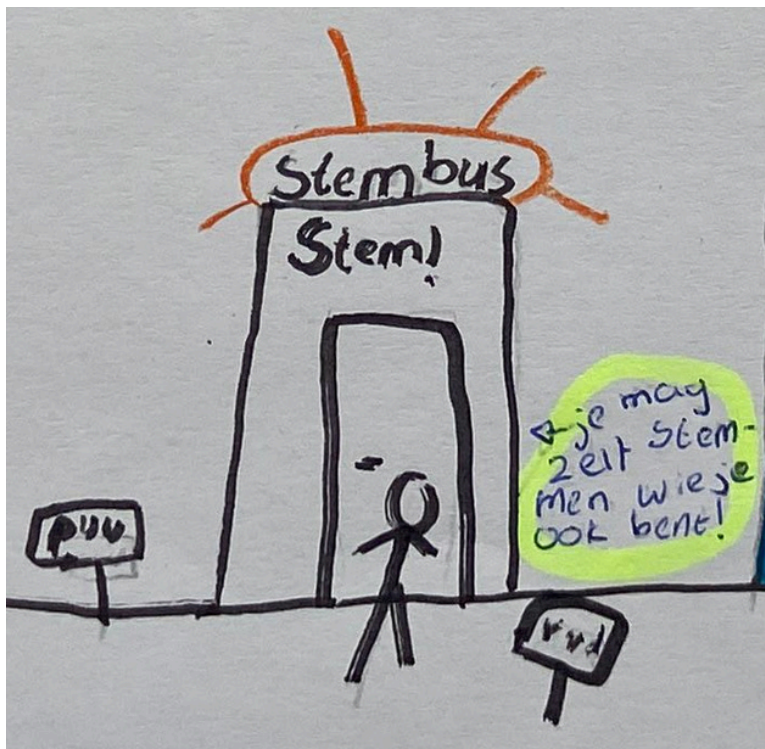 Stembus
Stem!
je mag
zelf stem-
men wie je
ook bent!
pvv
vvd